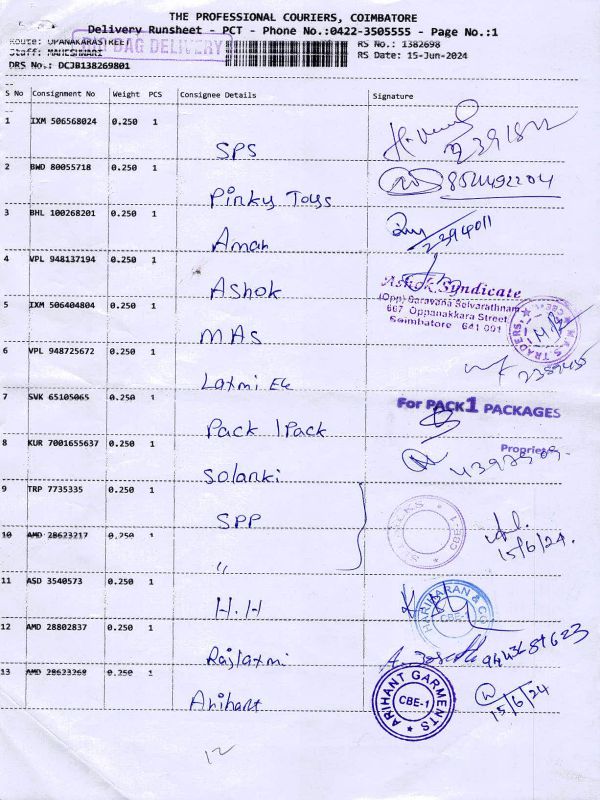 THE PROFESSIONAL COURIERS, COIMBATORE
Delivery Runsheet - PCT - Phone No.:0422-3505555 - Page No.:1
Route: UPANAKARASTREET
BAG DELIVERY
RS No.: 1382698
Staff: MAHESHWARI
RS Date: 15-Jun-2024
DRS No.: DCJB138269801
S No Consignment No Weight PCS Consignee Details Signature
1 IXM 506568024 0.250 1
SPS
2 BWD 80055718 0.250 1
Pinky Toys
3 BHL 100268201 0.250 1
Aman
2394011
4 VPL 948137194 0.250 1
Ashok
Ashok Syndicate
(Opp) Saravana Selvarathnam
667 Oppanakkara Street
Coimbatore 641 001
5 IXM 506404804 0.250 1
MAS
M.A.S. TRADERS
6 VPL 948725672 0.250 1
Laxmi Ele
7 SVK 65105065 0.250 1
Pack 1 Pack
For PACK1 PACKAGES
Proprietor
8 KUR 7001655637 0.250 1
Solanki
9 TRP 7735335 0.250 1
SPP
CBE-1
15/6/24.
10 AMD 28623217 0.250 1
"
11 ASD 3540573 0.250 1
H.H
HARIHARAN & CO
CBE-1
12 AMD 28802837 0.250 1
Rajlaxmi
9443687623
13 AMD 28623268 0.250 1
Arihant
ARIHANT GARMENTS
CBE-1
15/6/24
12